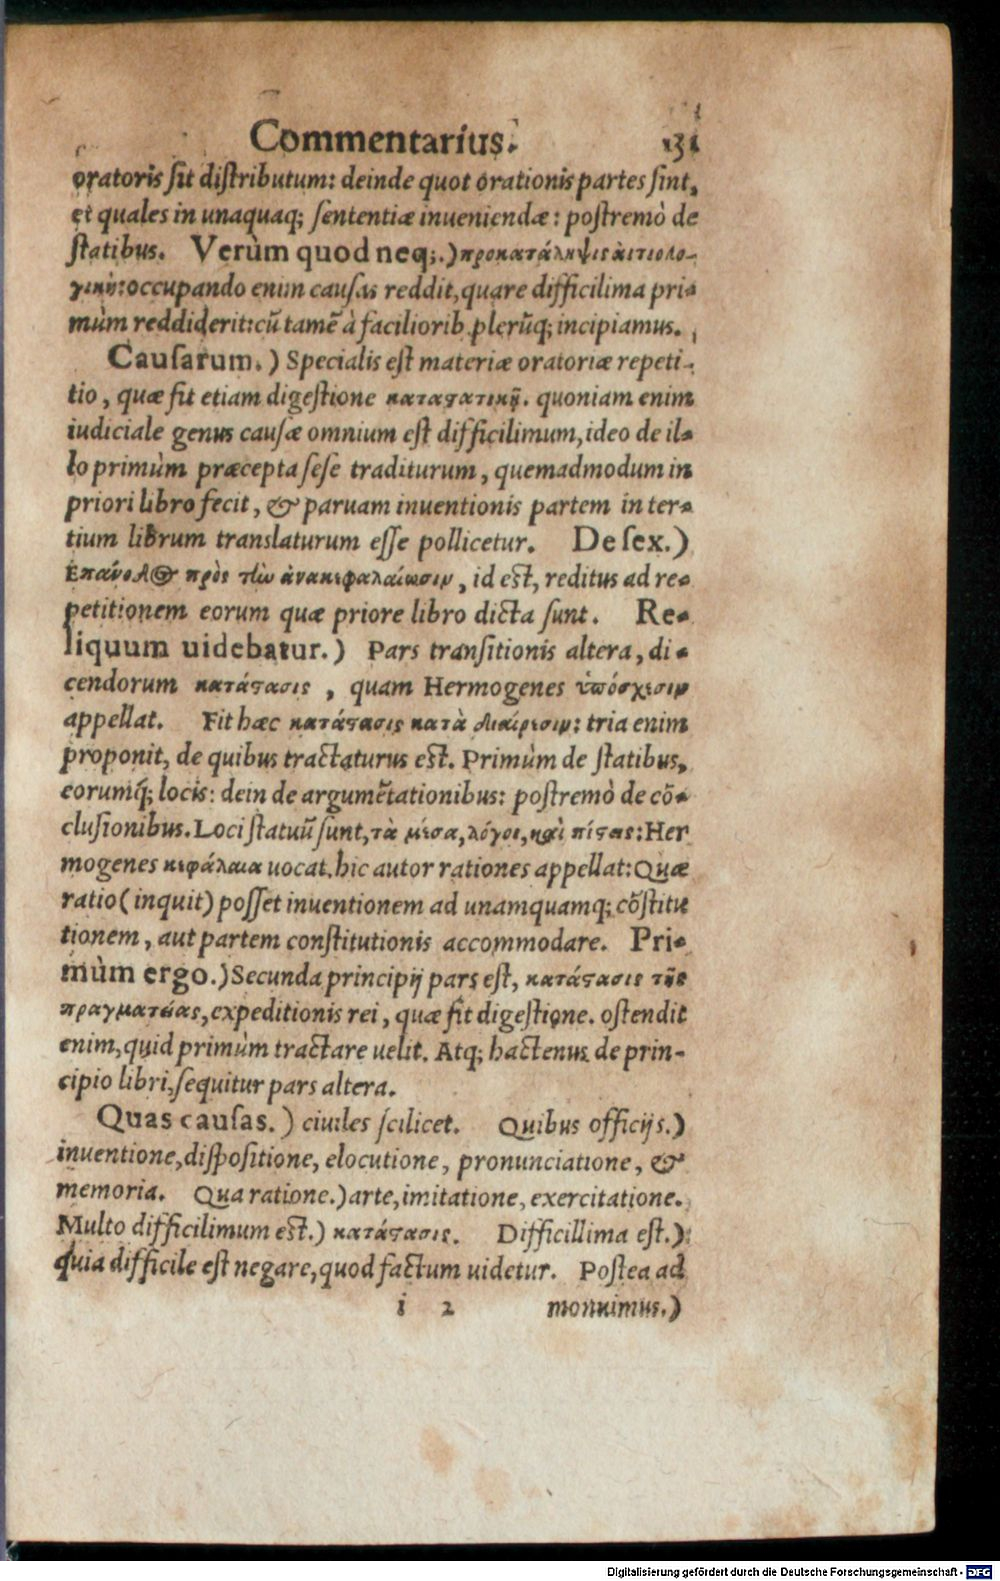 Commentarius. 131
oratoris sit distributum: deinde quot orationis partes sint,
et quales in unaquaq; sententiæ inueniendæ: postremò de
statibus. Verùm quod neq;.) προκατάληψις ἀιτιολο-
γική: occupando enim causas reddit, quare difficilima pri-
mùm reddiderit: cũ tamẽ à faciliorib. plerũq; incipiamus.
Causarum.) Specialis est materiæ oratoriæ repeti-
tio, quæ fit etiam digestione καταστατικῇ. quoniam enim
iudiciale genus causæ omnium est difficilimum, ideo de il-
lo primùm præcepta sese traditurum, quemadmodum in
priori libro fecit, & paruam inuentionis partem in ter-
tium librum translaturum esse pollicetur. De sex.)
Επάνοδος πρὸς τὴν ἀνακεφαλαίωσιν, id est, reditus ad re-
petitionem eorum quæ priore libro dicta sunt. Re-
liquum uidebatur.) Pars transitionis altera, di-
cendorum κατάστασις, quam Hermogenes ὑπόσχεσιν
appellat. Fit hæc κατάστασις κατὰ διαίρεσιν: tria enim
proponit, de quibus tractaturus est. Primùm de statibus,
eorumq́; locis: dein de argumẽtationibus: postremò de cõ-
clusionibus. Loci statuũ sunt, τὰ μέσα, λόγοι, καὶ πίστεις: Her
mogenes κεφάλαια uocat. hic autor rationes appellat: Quæ
ratio (inquit) posset inuentionem ad unamquamq; cõstitu
tionem, aut partem constitutionis accommodare. Pri-
mùm ergo.) Secunda principij pars est, κατάστασις τῆς
πραγματείας, expeditionis rei, quæ fit digestione. ostendit
enim, quid primùm tractare uelit. Atq; hactenus de prin-
cipio libri, sequitur pars altera.
Quas causas.) ciuiles scilicet. Quibus officijs.)
inuentione, dispositione, elocutione, pronunciatione, &
memoria. Qua ratione.) arte, imitatione, exercitatione.
Multo difficilimum est.) κατάστασις. Difficillima est.)
quia difficile est negare, quod factum uidetur. Postea ad
i 2 monuimus.)
Digitalisierung gefördert durch die Deutsche Forschungsgemeinschaft - DFG